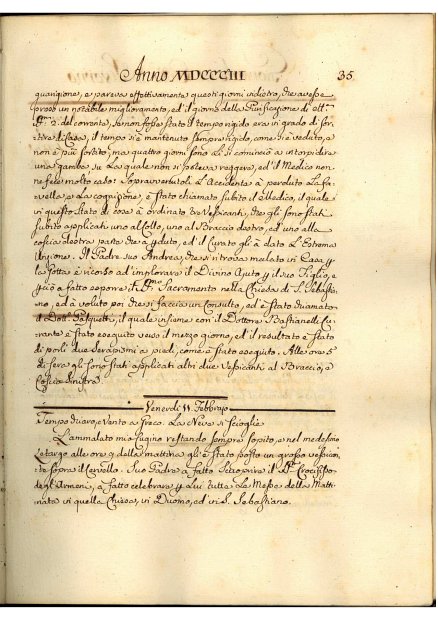 Anno MDCCCIII 35
guarigione, e pareva effettivamente questi giorni indietro, che avesse
provo un notabile miglioramento, ed il giorno della Purificazione di
2. del corrente, se non fosse stato il tempo rigido era in grado di sor-
tire di Casa, il tempo si è mantenuto sempre rigido, come si è veduto, e
non è più sortito; ma quattro giorni sono li si cominciò a intorpidire
una gamba su la quale non si poteva reggere, ed il Medico non
ne fece molto caso: Sopravvertutoli l'Accidente à perduto la fa-
vella, e la cognizione, è stato chiamato subito il Medico, il quale
in questo stato di cose à ordinato tre Vescicanti, che gli sono stati
subito applicati uno al Collo, uno al Braccio destro, ed uno alla
coscia destra parte che à perduto, ed il Curato gli à dato l'Estrema
Unzione. Il Padre suo Andrea, che si ritrova malato in Casa per
la Gotta è ricorso ad implorare il Divino Ajuto per il suo Figlio, e
perciò à fatto esporre il SS. Sacramento nella Chiesa di S. Sebastia-
no, ed à voluto poi che si faccia un Consulto, ed è stato chiamato
il Dott. Pasquetti, il quale insieme con il Dottore Bastianelli Cu-
rante è stato eseguito verso il mezzo giorno, ed il resultato è stato
di porli due Senapismi a piedi, come è stato eseguito. Alle ore 5
di sera gli sono stati applicati altri due Vescicanti al Braccio, e
Coscia sinistra.
Venerdì 11. Febbrajo
Tempo chiaro, e Vento a Greco. La Neve si scioglie
L'ammalato mio Cugino restando sempre sopito, e nel medesimo
Letargo alle ore 9 della mattina gli è stato posto un grosso vescican-
te sopra il Cervello. Suo Padre à fatto scoprire il SS. Crocifisso
degl'Armeni, à fatto celebrare per Lui tutte le Messe della Matti-
nata in quella Chiesa, in Duomo, ed in S. Sebastiano.